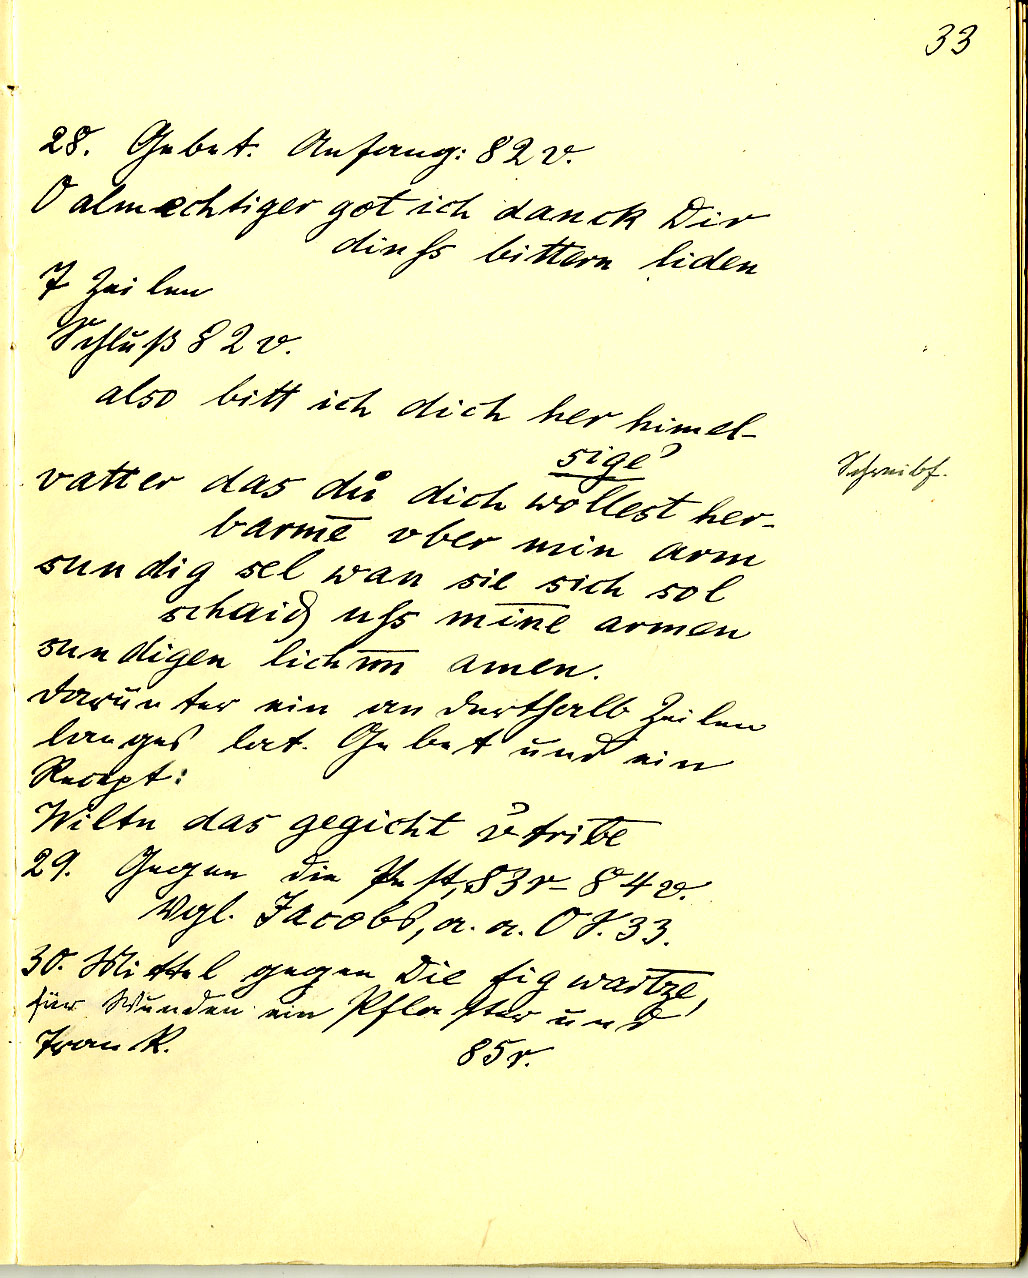 33
28. Gebet. Anfang: 82v.
O almechtiger got ich danck Dir
dinſs bittern liden
7 Zeilen
Schluß 82v.
also bitt ich dich her himel-
sige
Schreibf.
vatter das dů dich wöllest her-
barmē vber min arm
sundig sel wan sie sich sol
schaid uſs mine̅ armen
sundigen licham̅ amen.
darunter ein anderthalb Zeilen
langes lat. Gebet und ein
Recept:
Wiltu das gegicht v̉tribe̅
29. Gegen die Pest, 83r-84v.
Vgl. Jacobs, a. a. O S. 33.
30. Mittel gegen Die fig wartze̅,
für Wunden ein Pflaster und
Trank. 85r.